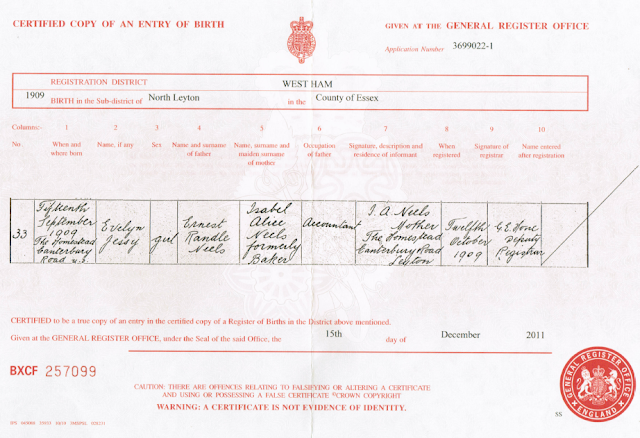 CERTIFIED COPY OF AN ENTRY OF BIRTH
GIVEN AT THE GENERAL REGISTER OFFICE
Application Number 3699022-1
REGISTRATION DISTRICT WEST HAM
1909 BIRTH in the Sub-district of North Leyton in the County of Essex
Columns:- 1 2 3 4 5 6 7 8 9 10
No. When and where born Name, if any Sex Name and surname of father Name, surname and maiden surname of mother Occupation of father Signature, description and residence of informant When registered Signature of registrar Name entered after registration
33
Fifteenth
September
1909
The Homestead
Canterbury
Road
Evelyn
Jessy
girl
Ernest
Randle
Neels
Isabel
Alice
Neels
formerly
Baker
Accountant
I. A. Neels
Mother
The Homestead
Canterbury Road
Leyton
Twelfth
October
1909
Deputy
Registrar
CERTIFIED to be a true copy of an entry in the certified copy of a Register of Births in the District above mentioned.
Given at the GENERAL REGISTER OFFICE, under the Seal of the said Office, the 15th day of December 2011
BXCF 257099
CAUTION: THERE ARE OFFENCES RELATING TO FALSIFYING OR ALTERING A CERTIFICATE
AND USING OR POSSESSING A FALSE CERTIFICATE ©CROWN COPYRIGHT
WARNING: A CERTIFICATE IS NOT EVIDENCE OF IDENTITY.
GENERAL REGISTER OFFICE
ENGLAND